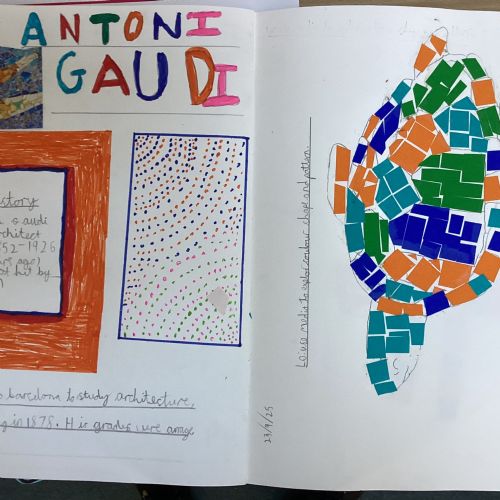 ANTONI
GAUDI
story
Gaudi
architect
52-1926
hit by
barcelona to study architecture,
g in 1878. His grades were
Lo: use media to explor colour, shape and pattern.
23/9/25